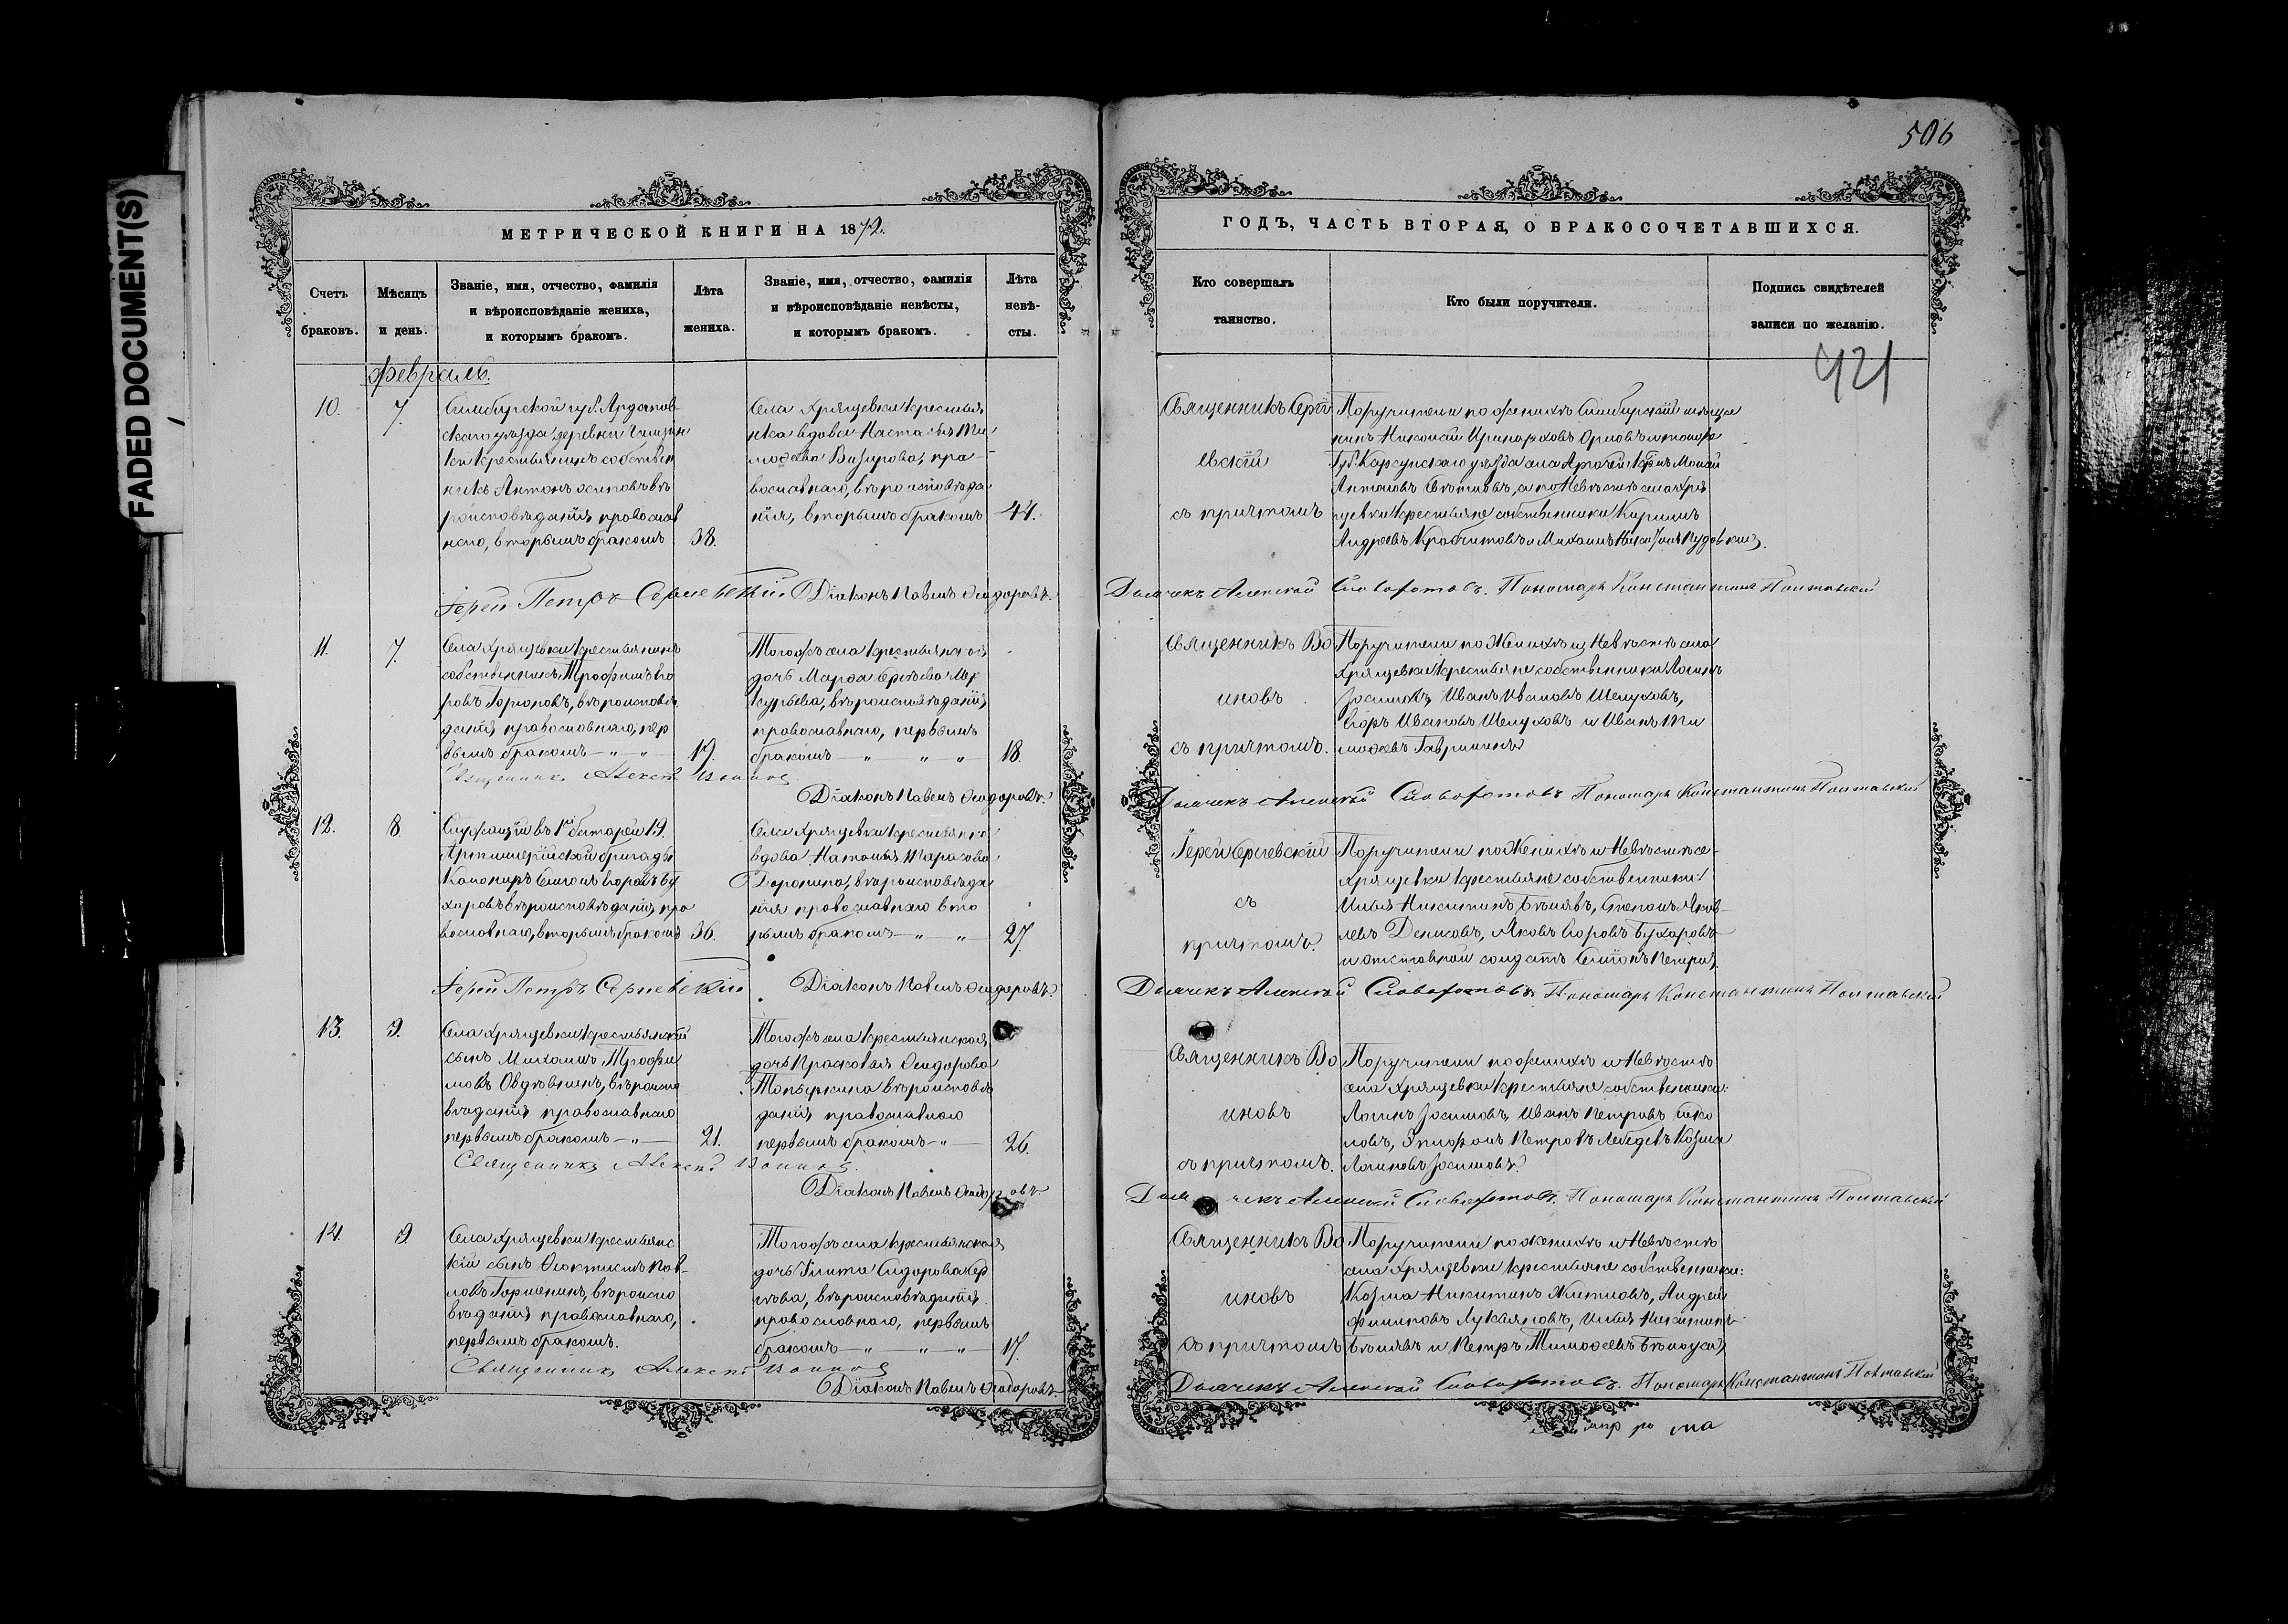 FADED DOCUMENT(S)
506
МЕТРИЧЕСКОЙ КНИГИ НА 1872.
Счетъ браковъ.
Мѣсяцъ и день.
Званіе, имя, отчество, фамилія
и вѣроисповѣданіе жениха,
и которымъ бракомъ.
Лѣта жениха.
Званіе, имя, отчество, фамилія
и вѣроисповѣданіе невѣсты,
и которымъ бракомъ.
Лѣта невѣ-
сты.
ГОДЪ, ЧАСТЬ ВТОРАЯ, О БРАКОСОЧЕТАВШИХСЯ.
Кто совершалъ
таинство.
Кто были поручители.
Подпись свидѣтелей
записи по желанію.
421
Февраль.
10.
7.
Симбирской губ. Ардатов-
скаго уѣзда деревни
крестьянинъ собствен
никъ Антонъ Осиповъ вѣ
роисповѣданія православ
наго, вторымъ бракомъ
38.
Села Хрящевки крестьян
ка вдова Настасья Ти
моѳеева, пра
вославнаго, вѣроисповѣда
нія, вторымъ бракомъ
44.
Священникъ Сергі
евскій
съ причтомъ
Поручители по женихѣ Симбирскій мѣща
нинъ Николай Орловъ и тойже
Губ. Карсунскаго уѣзда села
Антоновъ, а по Невѣстѣ села Хря
щевки крестьяне собственники Кирилъ
Андреевъ и Михаилъ
Іерей Петръ Сергіевскій Діаконъ Павелъ Ѳеодоровъ.
Дьячекъ Алексѣй Словохотовъ. Пономарь Константинъ Полтавскій
11.
7.
Села Хрящевки крестьянинъ
собственникъ Трофимъ Его
ровъ Горюновъ, вѣроисповѣ
данія православнаго, пер
вымъ бракомъ — „ — „ —
19.
Тогожъ села крестьянская
дочь Марѳа Сергѣева Мер
курьева, вѣроисповѣданія
православнаго, первымъ
бракомъ — „ — „ — „ —
18.
Священникъ Во
иновъ
съ причтомъ.
Поручители по Женихѣ и Невѣстѣ села
Хрящевки крестьяне собственники Логинъ
Зосимовъ, Иванъ Ивановъ Шелуховъ,
Егоръ Ивановъ Шелуховъ и Иванъ Ти
моѳеевъ Гаврилинъ
Священникъ Алексѣй Воиновъ
Діаконъ Павелъ Ѳеодоровъ.
Дьячекъ Алексѣй Словохотовъ Пономарь Константинъ Полтавскій
12.
8
Служащій въ 1й батареи 19.
Артиллерійской бригады
Канониръ Симонъ Егоровъ Бу
харовъ вѣроисповѣданія, пра
вославнаго, вторымъ бракомъ
36.
Села Хрящевки крестьянка
вдова Наталья Тарасова
Доронина, вѣроисповѣда
нія православнаго вто
рымъ бракомъ — „ — „ —
27.
Іерей Сергіевскій
съ
причтомъ.
Поручители по Женихѣ и Невѣстѣ се-
Хрящевки крестьяне собственники:
Илья Никитинъ Бѣляевъ, Степанъ Яков-
левъ Денисовъ, Яковъ Егоровъ Бухаровъ
и отставной солдатъ Петровъ.
Іерей Петръ Сергіевскій Діаконъ Павелъ Ѳеодоровъ.
Дьячекъ Алексѣй Словохотовъ Пономарь Константинъ Полтавскій
13.
9.
Села Хрящевки крестьянскій
сынъ Михаилъ Трофи
мовъ Овдѣвнинъ, вѣроиспо
вѣданія православнаго
первымъ бракомъ — „ —
21.
Тогожъ села крестьянская
дочь Прасковья Ѳеодорова
Топоркина вѣроисповѣ
данія православнаго
первымъ бракомъ — „ —
26.
Священникъ Во
иновъ
съ причтомъ.
Поручители по женихѣ и Невѣстѣ
села Хрящевки крестьяне собственники:
Логинъ Зосимовъ, Иванъ Петровъ
Петровъ Лебедевъ Козьма
Логиновъ Зосимовъ.
Священникъ Алексѣй Воиновъ.
Діаконъ Павелъ Ѳеодоровъ.
Дьячекъ Алексѣй Словохотовъ. Пономарь Константинъ Полтавскій
14.
9
Села Хрящевки крестьянс
кій сынъ Ѳеоктистъ Пав-
ловъ, вѣроиспо
вѣданія православнаго,
первымъ бракомъ.
Тогожъ села крестьянская
дочь Сидорова
вѣроисповѣданія
православнаго, первымъ
бракомъ — „ — „ — „ —
17.
Священникъ Во
иновъ
съ причтомъ
Поручители по женихѣ и Невѣстѣ
села Хрящевки крестьяне собственники:
Козьма Никитинъ, Андрей
Филиповъ Лукьяновъ, Илья Никитинъ
Бѣляевъ и Петръ Тимоѳеевъ Бѣлоусовъ
Священникъ Алексѣй Воиновъ
Діаконъ Павелъ Ѳеодоровъ
Дьячекъ Алексѣй Словохотовъ. Пономарь Константинъ Полтавскій